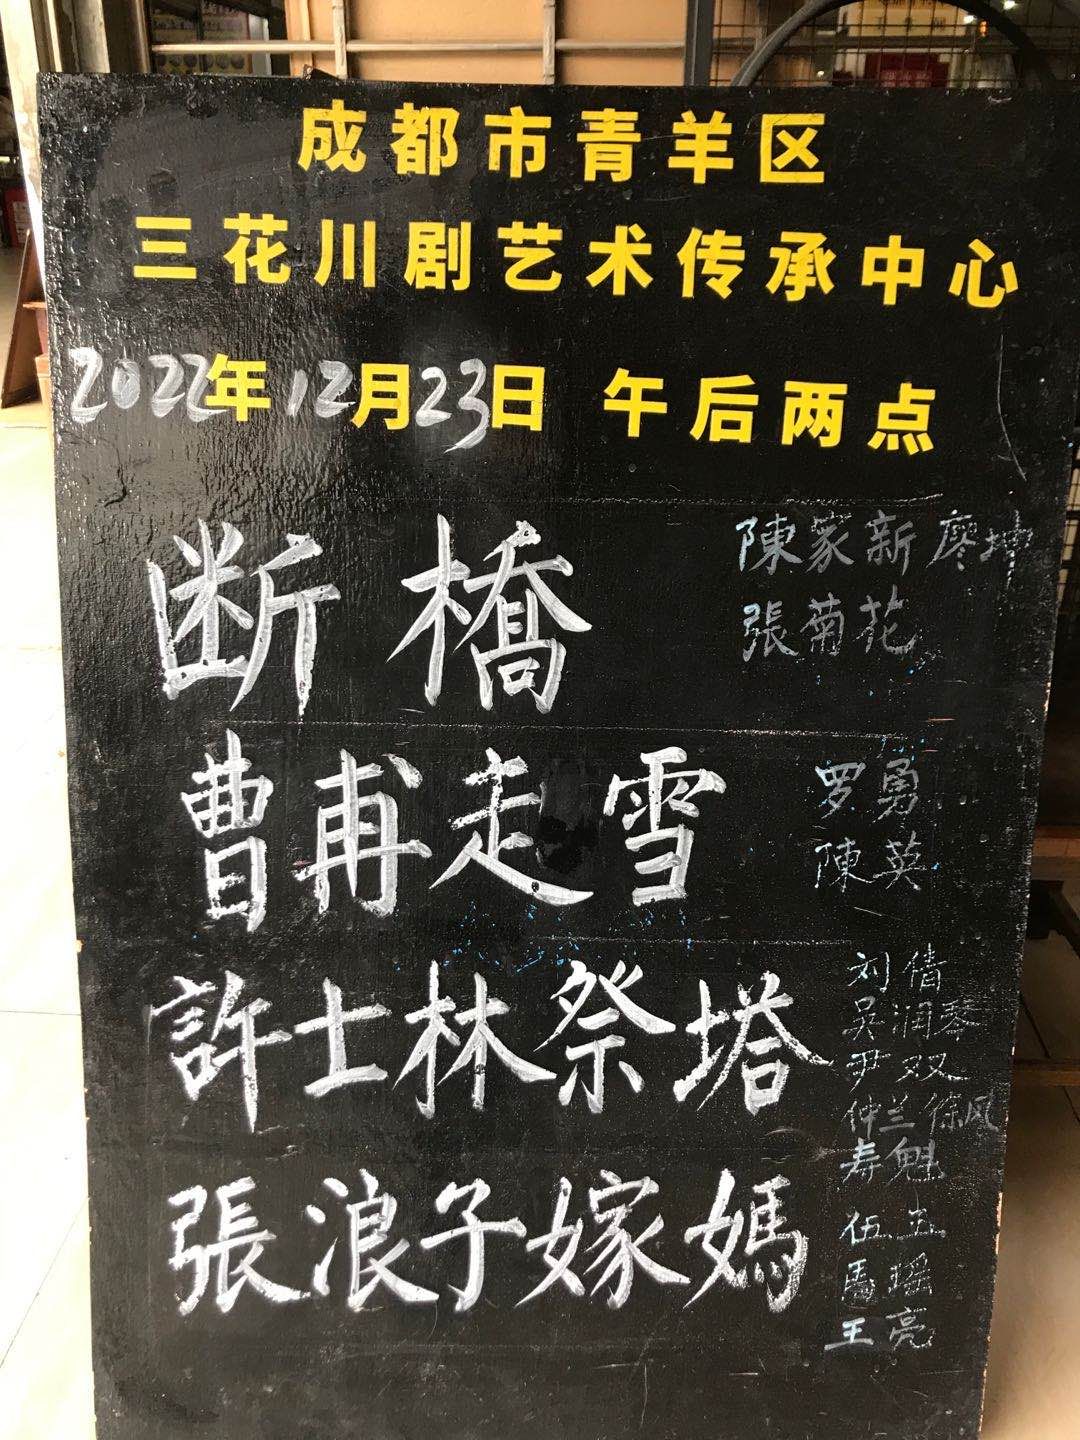 成都市青羊区
三花川剧艺术传承中心
2022年12月23日 午后两点
断橋 陳家新 廖坤
張菊花
曹甫走雪 罗勇
陳英
許士林祭塔 刘倩
吴润琴
尹双
仲兰 徐凤
寿魁
張浪子嫁媽 伍五
馬瑶
王亮